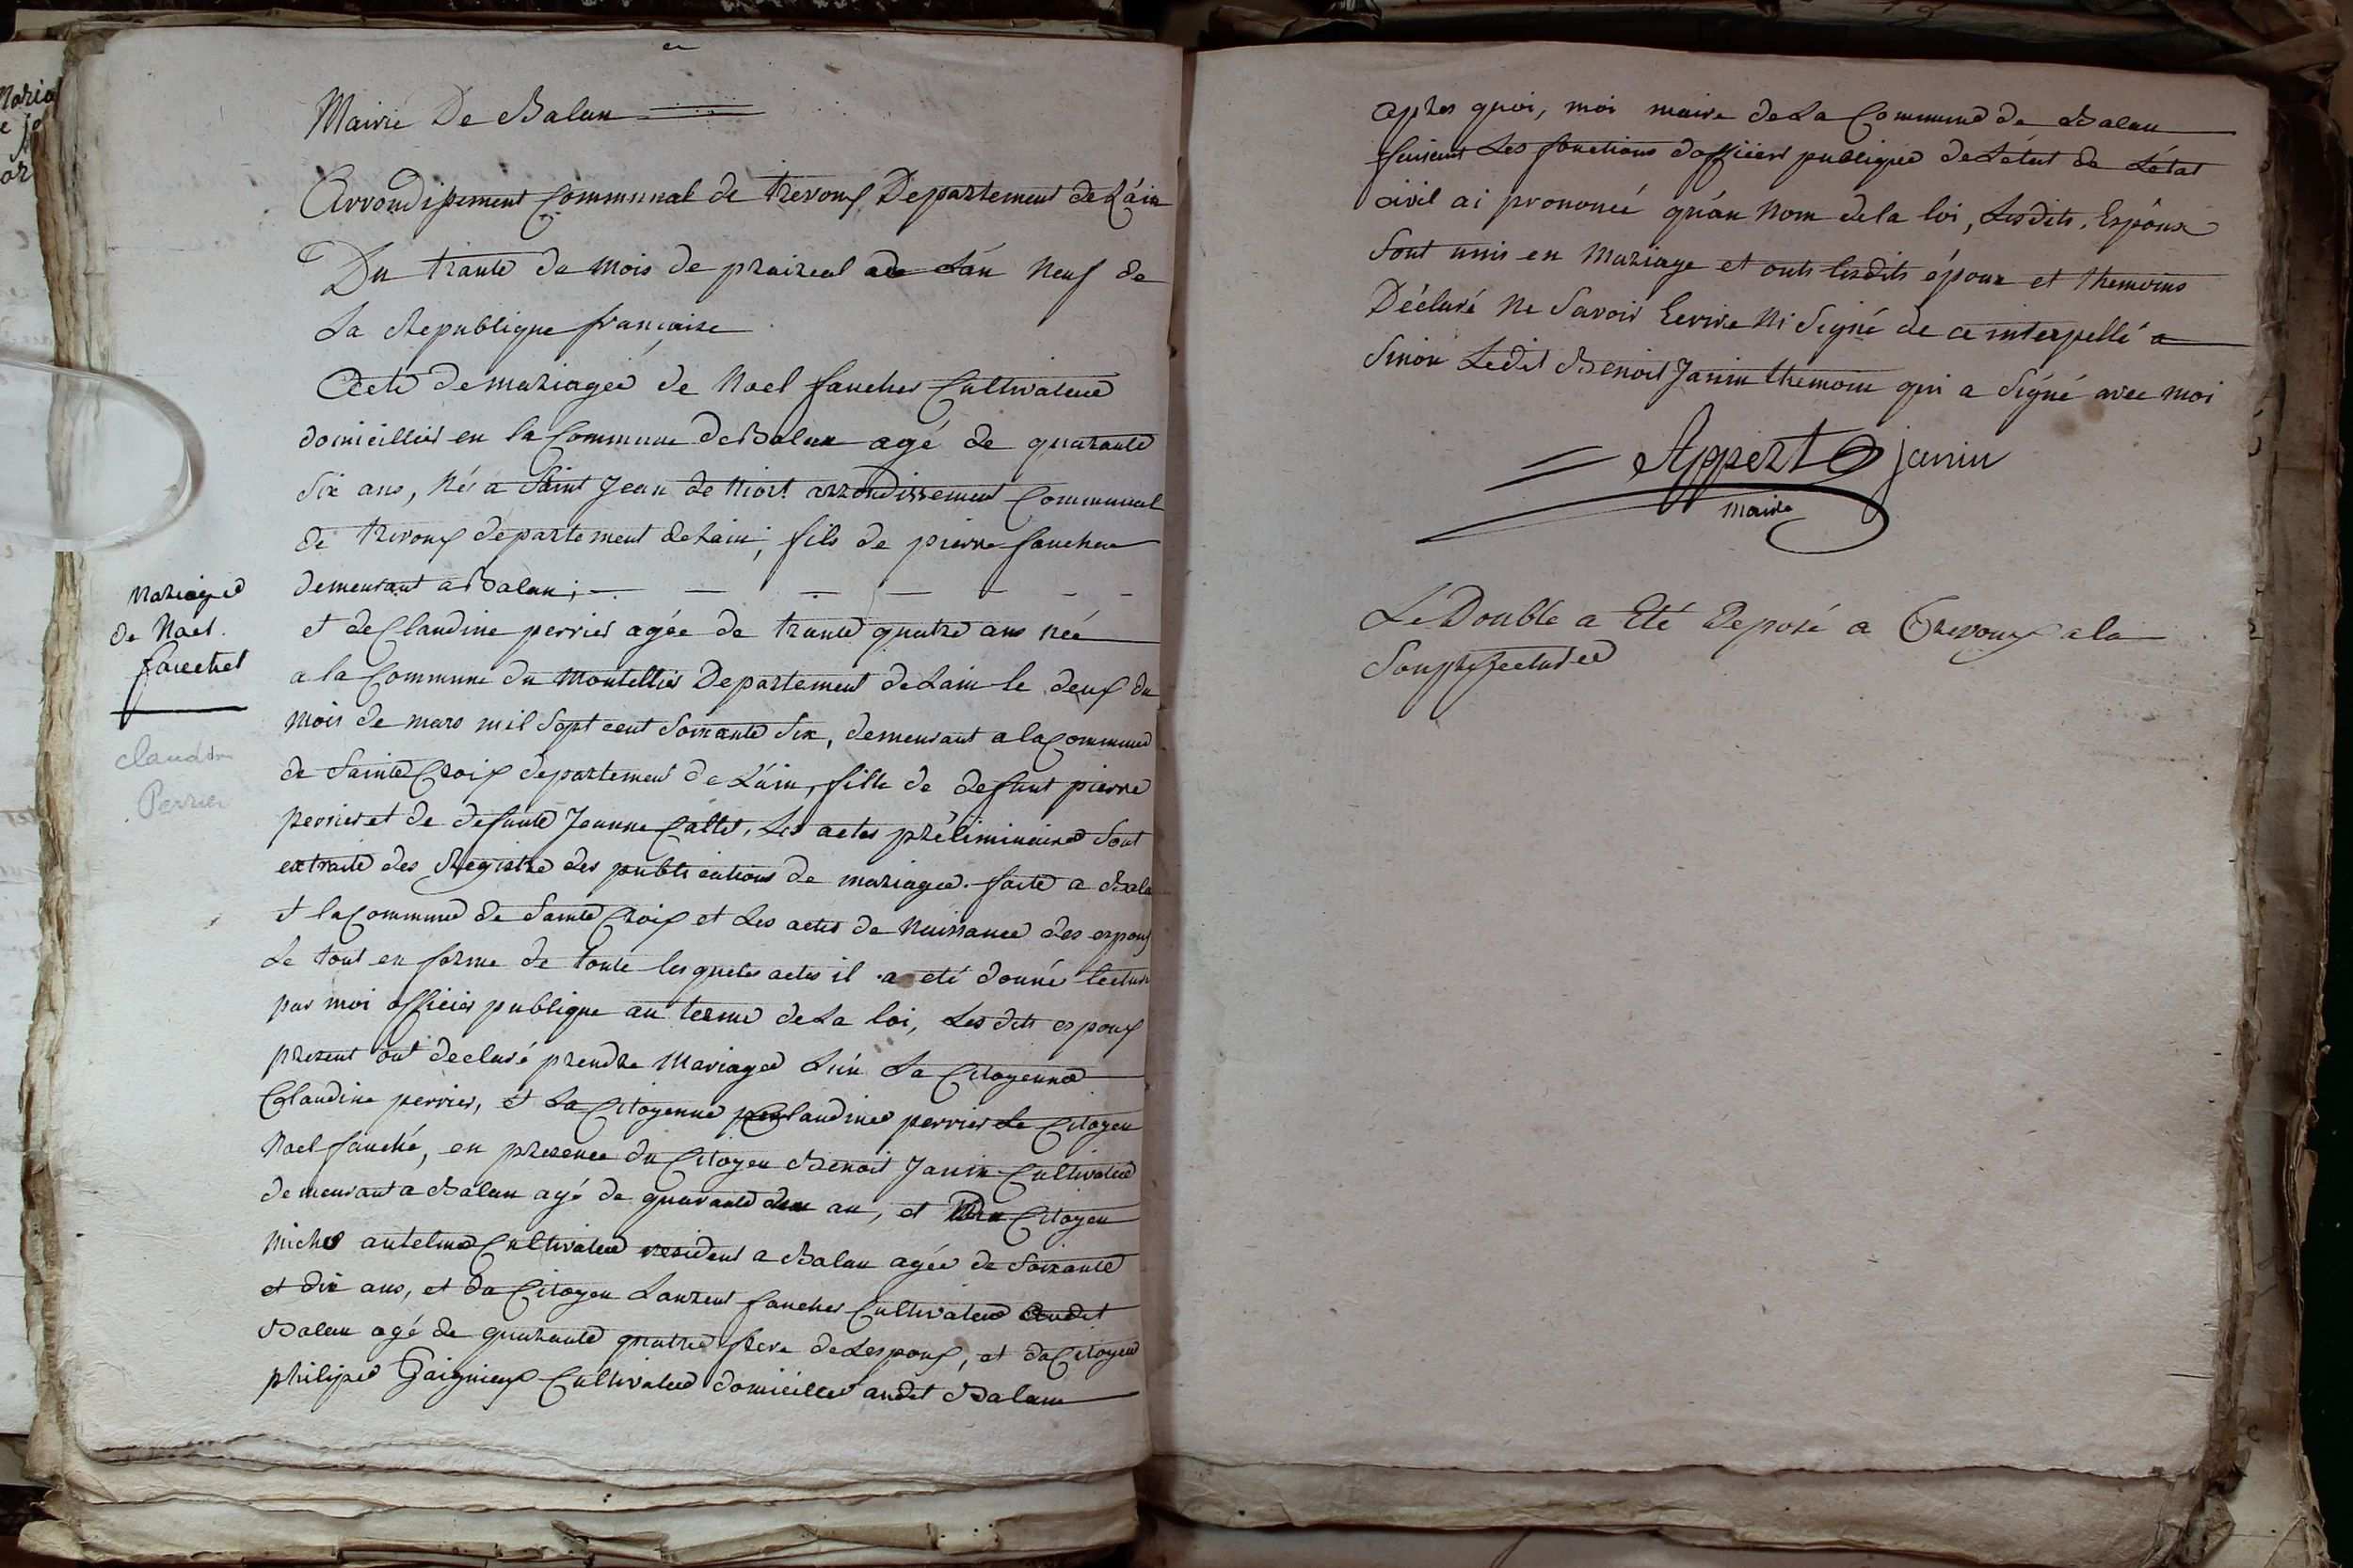 Mairie De Balan
Arrondissement Communal de trevoux Departement de L'ain
Du trante de mois de praireal de L'an Neuf de
La Republique française
Acte de mariagee de Noel faucher Cultivateur
domicillier en la Commune de Balan agé de quarante
six ans, Né a Saint Jean de Niort arrondissement Communal
de trevoux departement de Lain, fils de pierre faucher
demeurant a Balan;
Mariage
de Noel
faucher
claudine
Perrier
et de Claudine perrier agée de trante quatre ans née
a la Commune du Montellier Departement de Lain le deux du
mois de mars mil Sept cent Soixante Six, demeurant a la Commune
de Sainte Croix departement de L'ain, fille de defunt pierre
perrier et de defunte Jeanne Les actes préliminaires Sont
extraite des Registre des publications de mariagee faite a Bala
et la Commune de Sainte Croix et Les actes de Naissance des espoux
Le tout en forme de toute lesqueles actes il a eté donné lecture
par moi officier publique au terme de La loi, Les dits espoux
present ont declaré prendre Mariage L'un La Citoyenne
Claudine perrier, et La Citoyenne Claudine perrier Le Citoyen
Noel fauché, en presence du Citoyen Benoit Janin Cultivateur
demeurant a Balan agé de quarante deux an, et Du Citoyen
Michel antelme Cultivateur resident a Balan agée de Soixante
et dix ans, et da Citoyen Laurent faucher Cultivateur audit
Balan agé de quarante quatre frere de Lespoux, et da Citoyen
philipe Gaignieux Cultivateur domicillier audit Balan
apres quoi, moi maire de La Commune de Balan
faisant Les fonctions dofficier publique de Letat de L'état
civil ai prononcé qu'au Nom de la loi, Lesdits Espoux
Sont unis en Mariage et onts lesdits époux et themoins
Déclaré Ne Savoir Ecrire Ni Signé de ce interpellé a
Sinon Ledit Benoit Janin themoin qui a Signé avec moi
Appert janin
maire
Le Double a Eté Deposé a Trevoux a la
Souprefecturee